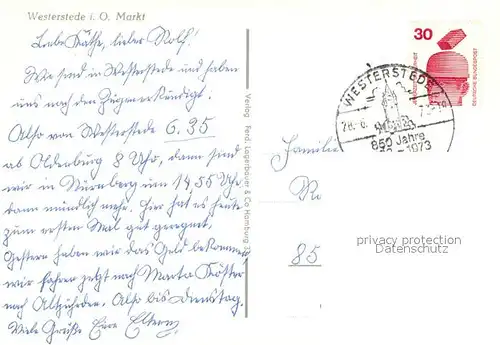 Westerstede i. O. Markt
Liebe Käthe, lieber Rolf!
Wir sind in Westerstede und haben
uns nach den Zügen erkundigt.
Also von Westerstede 6.35
ab Oldenburg 8 Uhr, dann sind
wir in Nürnberg um 14.55 Uhr,
dann mündlich mehr. Hier hat es heute
zum ersten Mal gut geregnet,
Gestern haben wir das Geld bekommen
wir fahren jetzt nach Marta Köster
nach Altjührden. Also bis Dienstag.
Viele Grüße Eure Eltern
Verlag Ferd. Lagerbauer & Co Hamburg
30
DEUTSCHE BUNDESPOST
WESTERSTEDE
850 Jahre
1973
Familie
Ro
85
privacy protection
Datenschutz